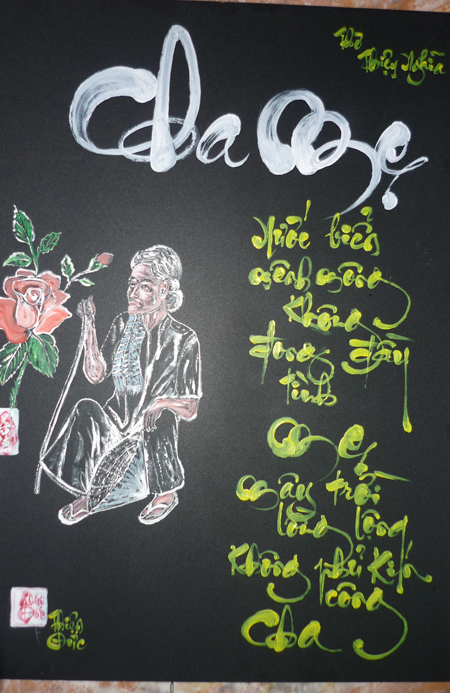 Thơ
Thiện Nghĩa
Cha Mẹ
Nước biển
mênh mông
không
đong đầy
tình
Mẹ
Mây trời
lồng lộng
không phủ kín
công
Cha
Thiện